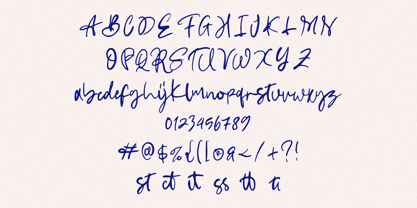 A B C D E F G H I J K L M N
O P Q R S T U V W X Y Z
abcdefghijklmnopqrstuvwxyz
0123456789
#@$%{([©&</+?!
st ct it ss tt